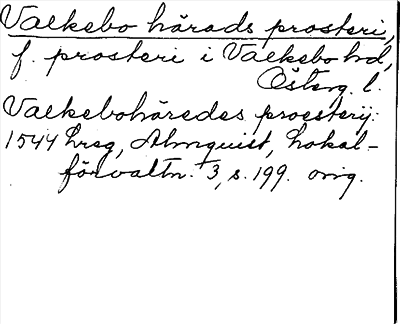 Valkebo härads prosteri,
f. prosteri i Valkebo hd,
Österg. l.
Valkebohäredes proesterij:
1544 Lreg, Almquist, Lokal-
förvaltn. 3, s. 199. orig.